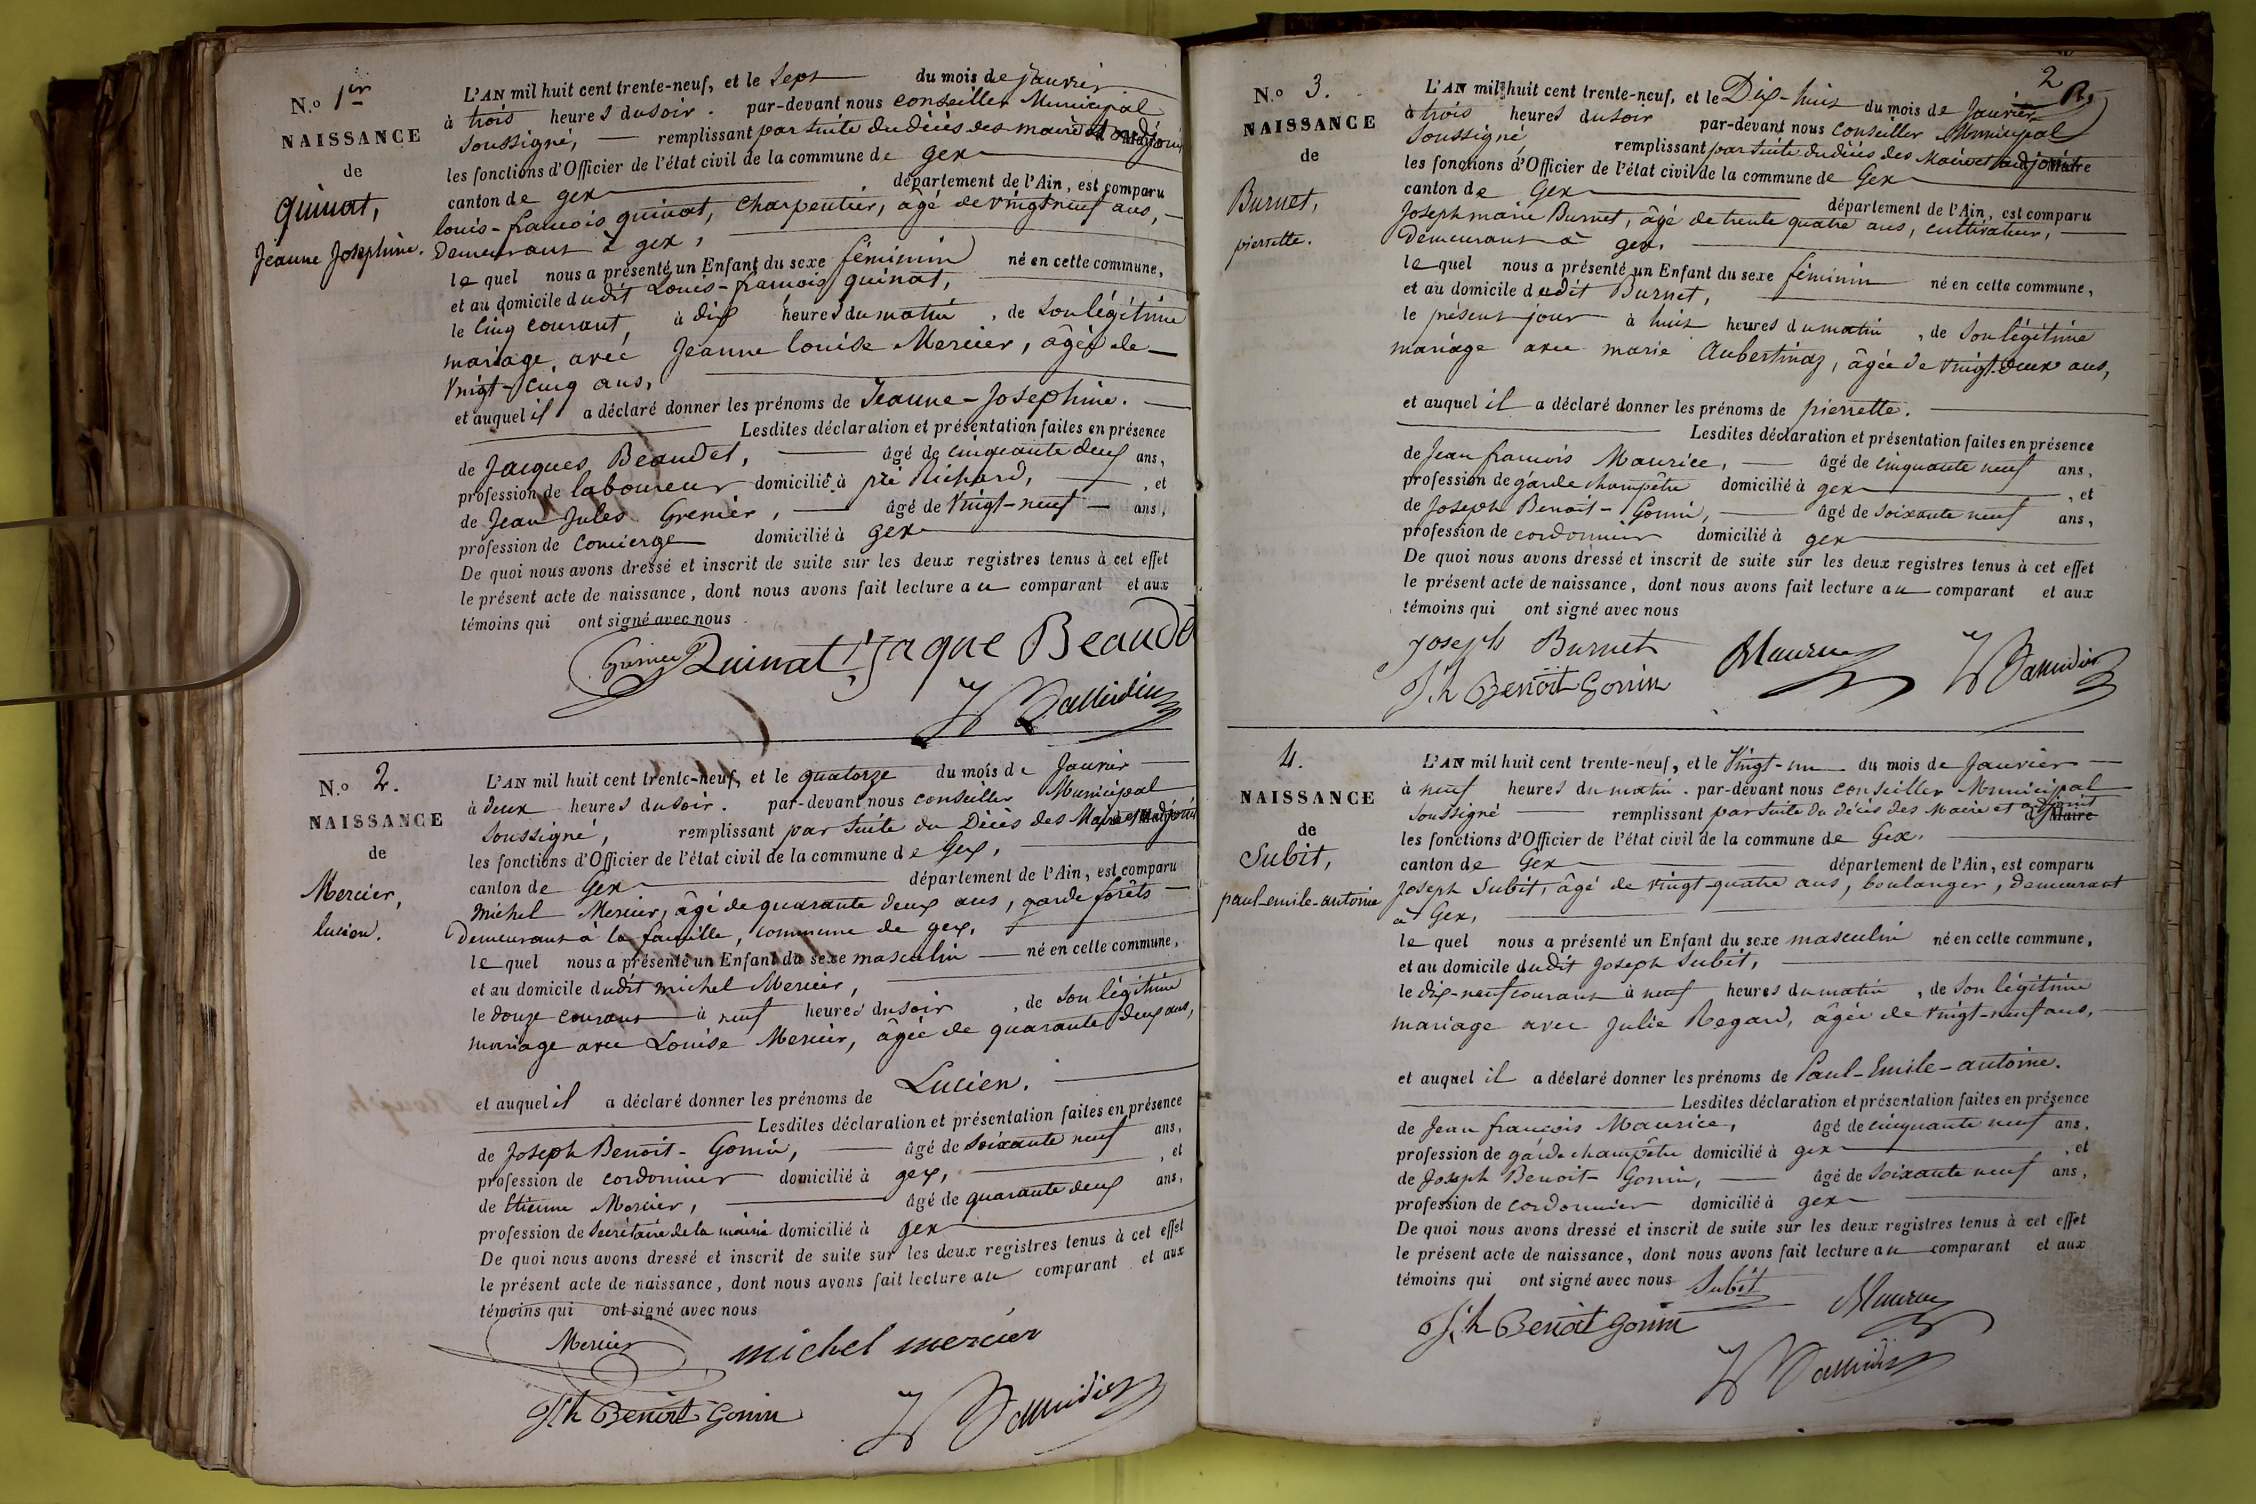 N.o 1er
NAISSANCE
de
quinat,
Jeanne Josephine.
L'AN mil huit cent trente-neuf, et le sept du mois de janvier
à trois heures du soir. par-devant nous conseiller Municipal
soussigné, remplissant par suite du décès des maire et adjoint
les fonctions d'Officier de l'état civil de la commune de gex
canton de gex département de l'Ain, est comparu
louis-francois quinat, charpentier, âgé de vingt neuf ans,
demeurant à gex,
le quel nous a présenté un Enfant du sexe féminin né en cette commune,
et au domicile dudit Louis-francois quinat,
le cinq courant, à dix heures du matin, de son légitime
mariage avec Jeanne louise Mercier, âgée de
vingt-cinq ans,
et auquel il a déclaré donner les prénoms de Jeanne-Josephine.
Lesdites déclaration et présentation faites en présence
de Jacques Beaudet, âgé de cinquante deux ans,
profession de laboureur domicilié à pré Richard, , et
de Jean Jules Grenier, âgé de vingt-neuf ans,
profession de concierge domicilié à gex
De quoi nous avons dressé et inscrit de suite sur les deux registres tenus à cet effet
le présent acte de naissance, dont nous avons fait lecture au comparant et aux
témoins qui ont signé avec nous
Grenier Quinat Jaque Beaudet
N.o 2.
NAISSANCE
de
Mercier,
lucien.
L'AN mil huit cent trente-neuf, et le quatorze du mois de Janvier
à deux heures du soir. par-devant nous conseiller Municipal
soussigné, remplissant par suite du Décès des Maire et adjoint
les fonctions d'Officier de l'état civil de la commune de Gex,
canton de Gex département de l'Ain, est comparu
Michel Mercier, âgé de quarante deux ans, garde forêts
demeurant à la faucille, commune de gex,
le quel nous a présenté un Enfant du sexe masculin né en cette commune,
et au domicile dudit michel Mercier,
le douze courant à neuf heures du soir, de son légitime
mariage avec Louise Mercier, âgée de quarante deux ans,
et auquel il a déclaré donner les prénoms de Lucien.
Lesdites déclaration et présentation faites en présence
de Joseph Benoit-Gonin, âgé de soixante neuf ans,
profession de cordonnier domicilié à gex, , et
de Etienne Mercier, âgé de quarante deux ans,
profession de secrétaire de la mairie domicilié à gex
De quoi nous avons dressé et inscrit de suite sur les deux registres tenus à cet effet
le présent acte de naissance, dont nous avons fait lecture au comparant et aux
témoins qui ont signé avec nous
Mercier michel mercier
Jh Benoit Gonin
2
N.o 3.
NAISSANCE
de
Burnet,
pierrette.
L'AN mil huit cent trente-neuf, et le Dix-huit du mois de Janvier
à trois heures du soir par-devant nous conseiller Municipal
soussigné remplissant par suite du décès des Maire et adjoint Maire
les fonctions d'Officier de l'état civil de la commune de Gex
canton de Gex département de l'Ain, est comparu
Joseph marie Burnet, âgé de trente quatre ans, cultivateur,
demeurant à gex,
le quel nous a présenté un Enfant du sexe féminin né en cette commune,
et au domicile dudit Burnet,
le présent jour à huit heures du matin, de son légitime
mariage avec marie Aubertinaz, âgée de vingt-deux ans,
et auquel il a déclaré donner les prénoms de pierrette.
Lesdites déclaration et présentation faites en présence
de Jean francois Maurice, âgé de cinquante neuf ans,
profession de gârde champêtre domicilié à gex , et
de Joseph Benoit-Gonin, âgé de soixante neuf ans,
profession de cordonnier domicilié à gex
De quoi nous avons dressé et inscrit de suite sur les deux registres tenus à cet effet
le présent acte de naissance, dont nous avons fait lecture au comparant et aux
témoins qui ont signé avec nous
Joseph Burnet Maurice
Jh Benoit Gonin
4.
NAISSANCE
de
Subit,
paul-emile-antoine
L'AN mil huit cent trente-neuf, et le Vingt-un du mois de Janvier
à neuf heures du matin. par-devant nous conseiller Municipal
soussigné remplissant par suite du décès des Maire et adjoint Maire
les fonctions d'Officier de l'état civil de la commune de Gex.
canton de Gex département de l'Ain, est comparu
Joseph Subit, âgé de vingt-quatre ans, boulanger, demeurant
à Gex,
le quel nous a présenté un Enfant du sexe masculin né en cette commune,
et au domicile dudit Joseph Subit,
le dix-neuf courant à neuf heures du matin, de son légitime
mariage avec Julie Regard, âgée de vingt-neuf ans,
et auquel il a déclaré donner les prénoms de Paul-Emile-antoine.
Lesdites déclaration et présentation faites en présence
de Jean francois Maurice, âgé de cinquante neuf ans,
profession de gârde champêtre domicilié à gex , et
de Joseph Benoit-Gonin, âgé de soixante neuf ans,
profession de cordonnier domicilié à gex
De quoi nous avons dressé et inscrit de suite sur les deux registres tenus à cet effet
le présent acte de naissance, dont nous avons fait lecture au comparant et aux
témoins qui ont signé avec nous
Subit Maurice
Jh Benoit Gonin